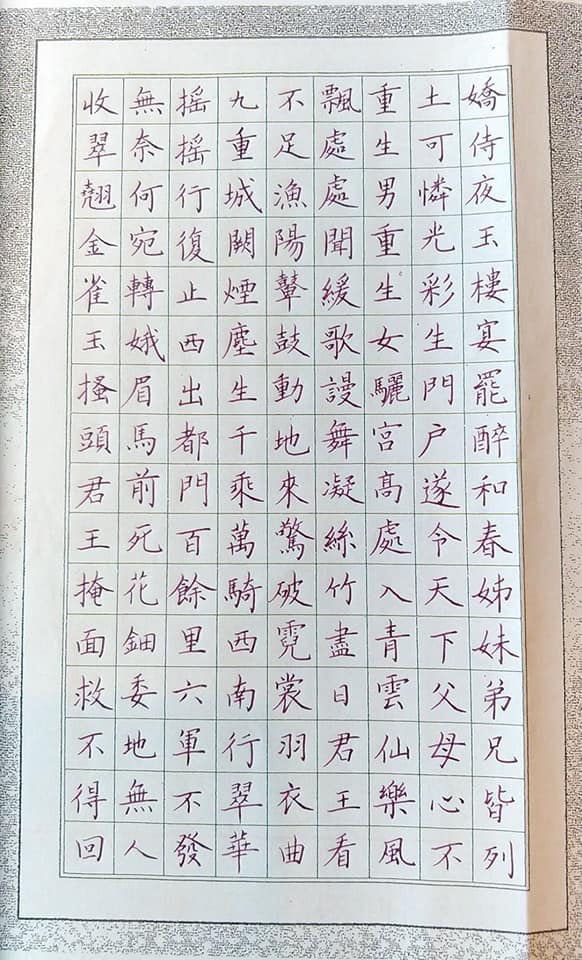 嬌侍夜玉樓宴罷醉和春姊妹弟兄皆列
土可憐光彩生門户遂令天下父母心不
重生男重生女驪宮高處入青雲仙樂風
飄處處聞緩歌謾舞凝絲竹盡日君王看
不足漁陽鼙鼓動地來驚破霓裳羽衣曲
九重城闕煙塵生千乘萬騎西南行翠華
摇摇行復止西出都門百餘里六軍不發
無奈何宛轉娥眉馬前死花鈿委地無人
收翠翹金雀玉搔頭君王掩面救不得回